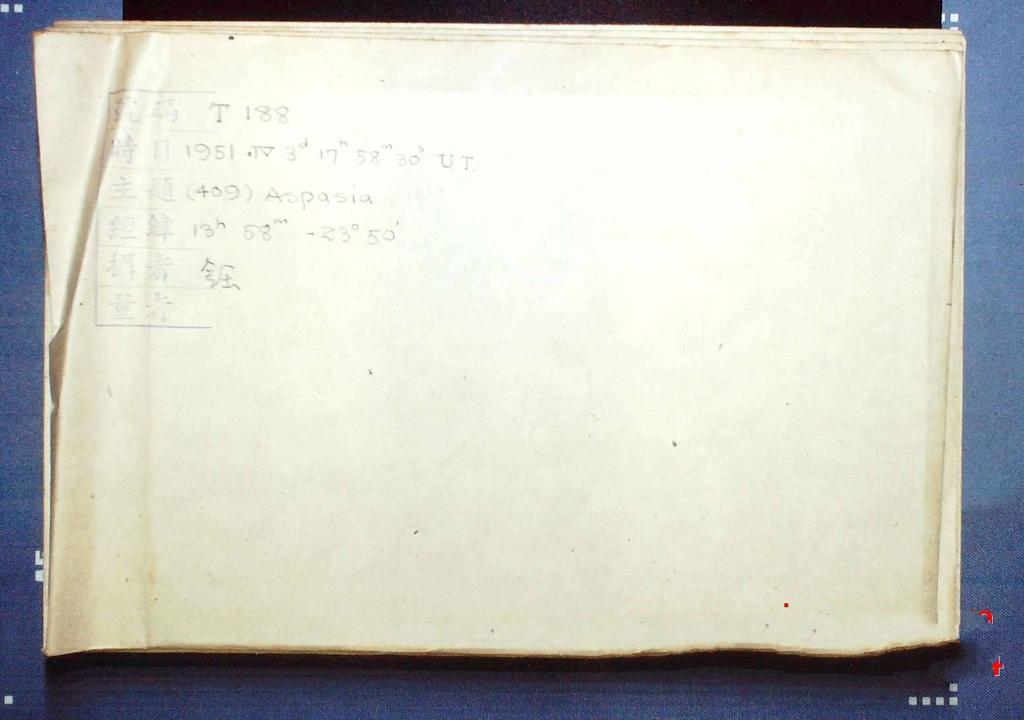 號碼 T 188
時日 1951 .IV 3ᵈ 17ʰ 58ᵐ 30ˢ U.T.
主題 (409) Aspasia
經緯 13ʰ 58ᵐ -23° 50'
攝者 鈺
量者